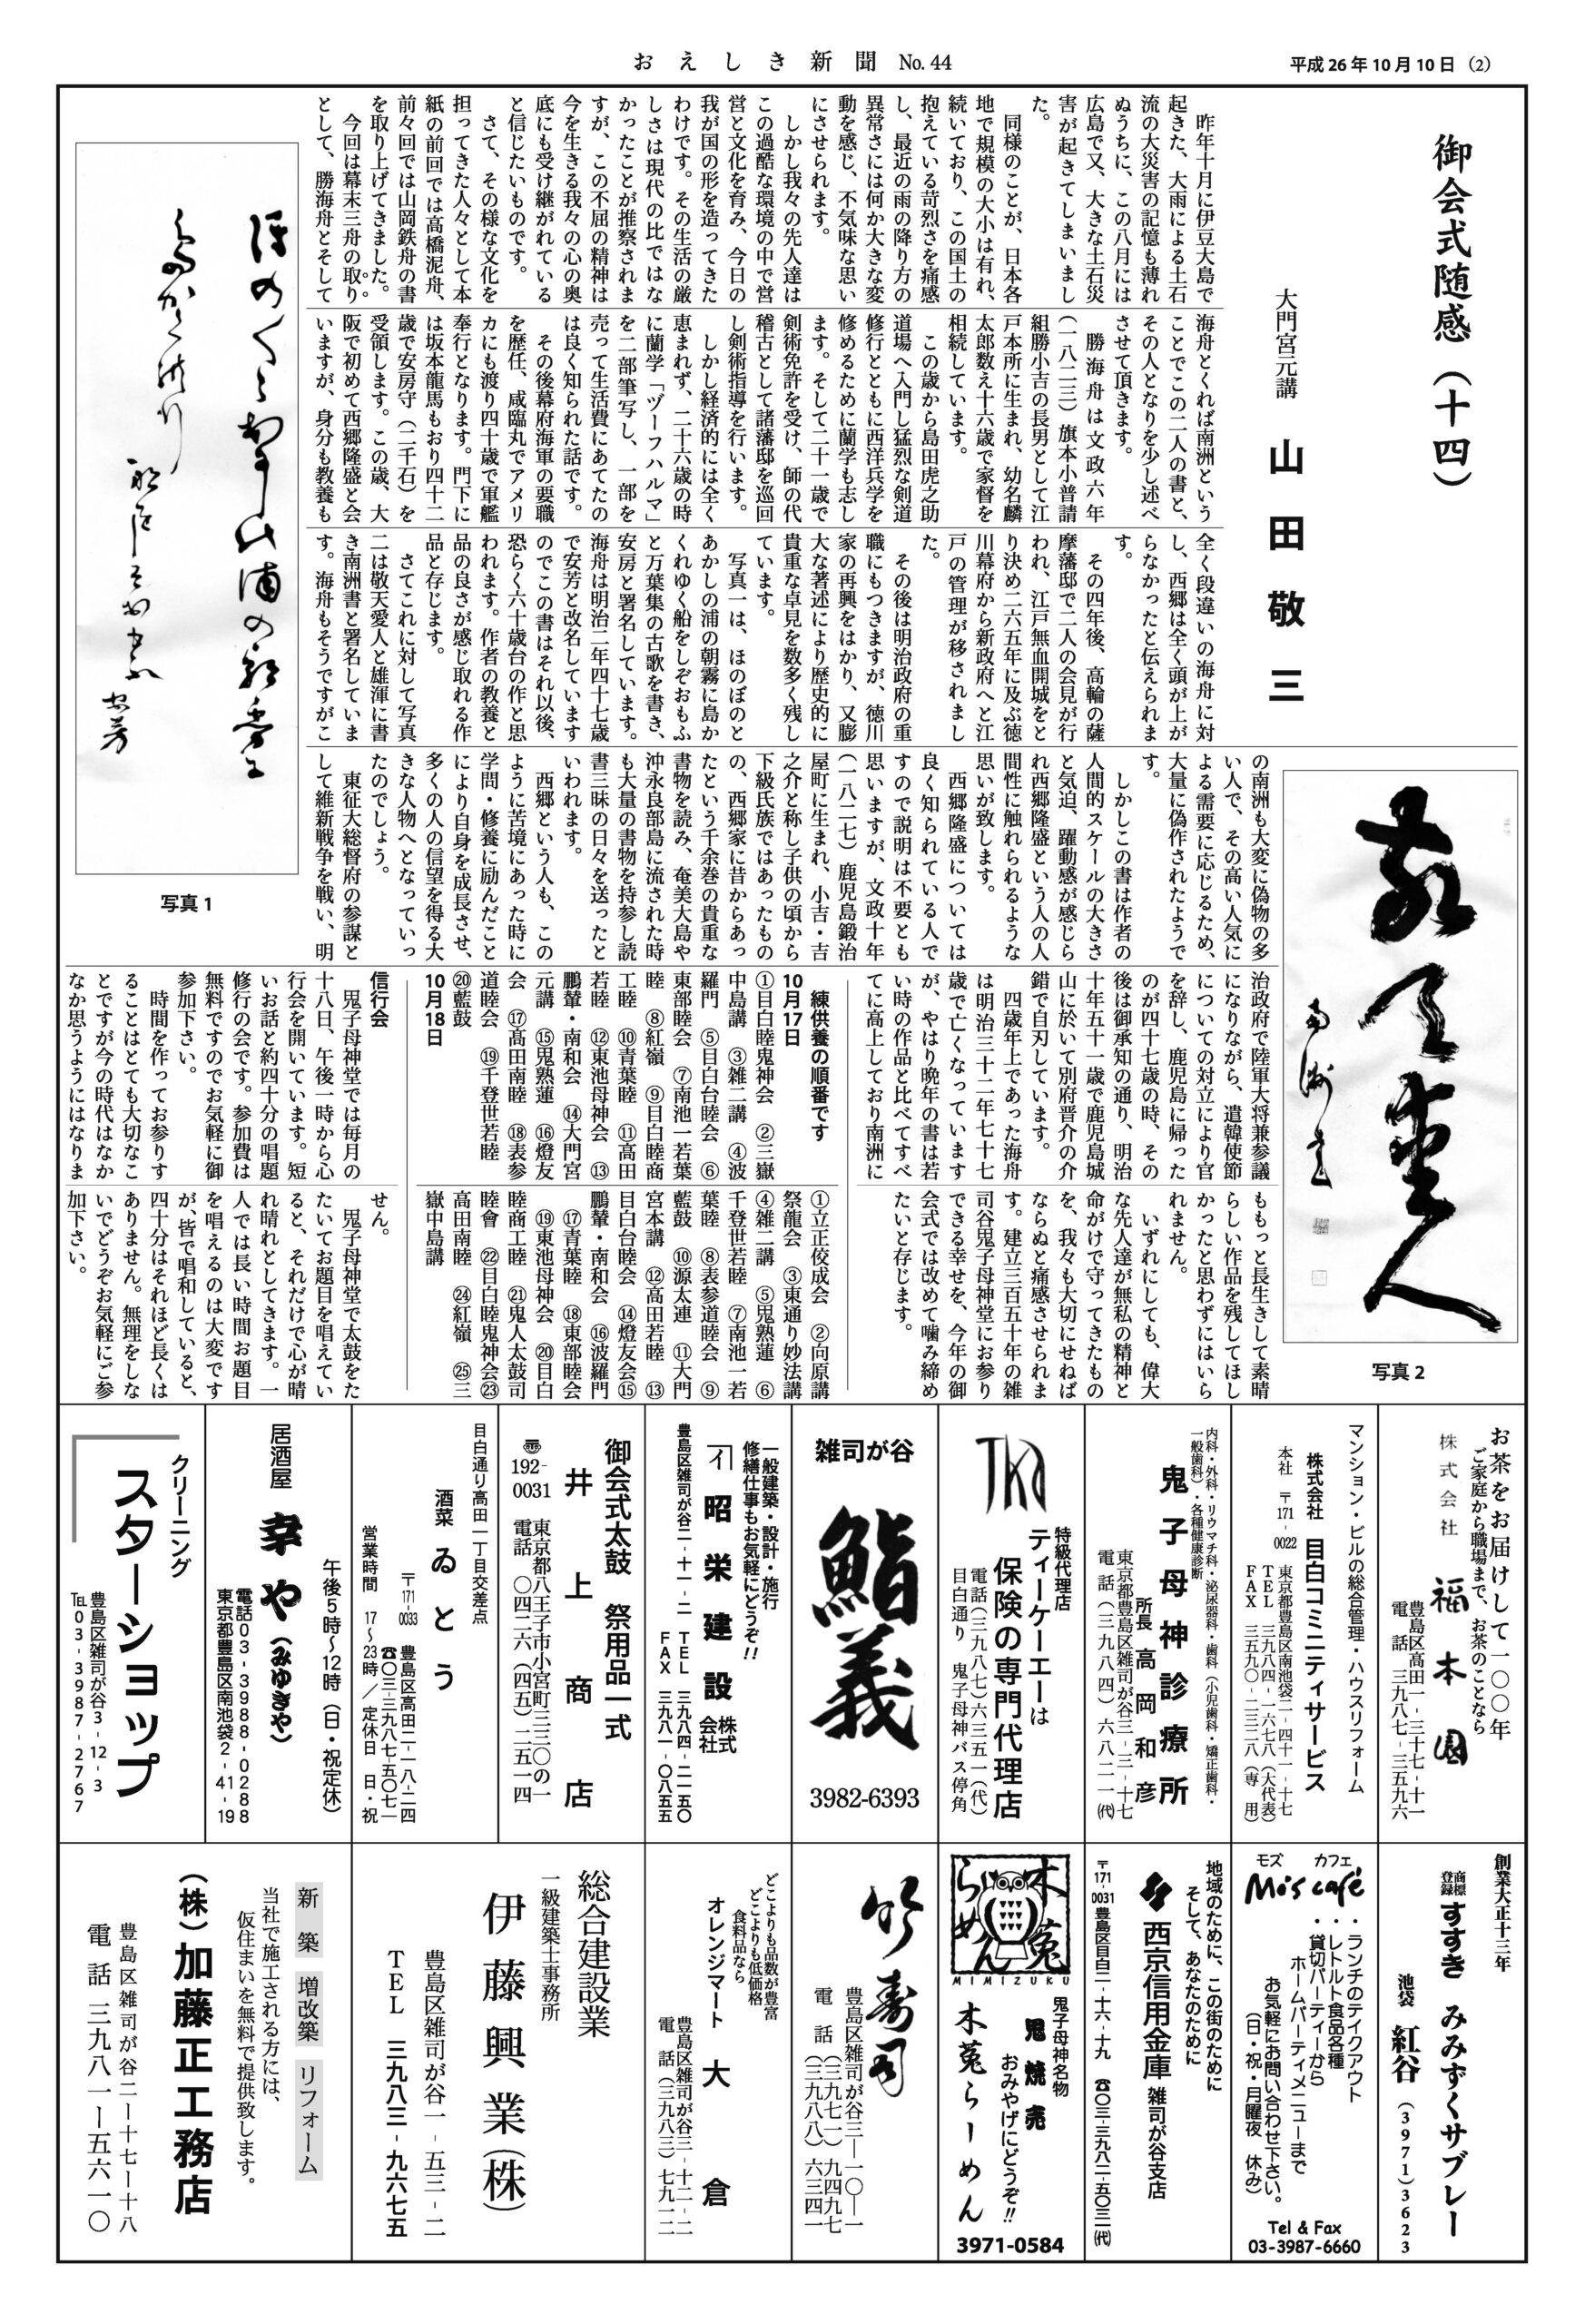 おえしき新聞 No. 44
平成26年10月10日（2）
御会式随感（十四）
大門宮元講 山田敬三
昨年十月に伊豆大島で
起きた、大雨による土石
流の大災害の記憶も薄れ
ぬうちに、この八月には
広島で又、大きな土石災
害が起きてしまいまし
た。
同様のことが、日本各
地で規模の大小は有れ、
続いており、この国土の
抱えている苛烈さを痛感
し、最近の雨の降り方の
異常さには何か大きな変
動を感じ、不気味な思い
にさせられます。
しかし我々の先人達は
この過酷な環境の中で営
営と文化を育み、今日の
我が国の形を造ってきた
わけです。その生活の厳
しさは現代の比ではな
かったことが推察されま
すが、この不屈の精神は
今を生きる我々の心の奥
底にも受け継がれている
と信じたいものです。
さて、その様な文化を
担ってきた人々として本
紙の前回では高橋泥舟、
前々回では山岡鉄舟の書
を取り上げてきました。
今回は幕末三舟の取り。
として、勝海舟とそして
海舟とくれば南洲という
ことでこの二人の書と、
その人となりを少し述べ
させて頂きます。
勝海舟は文政六年
（一八二三）旗本小普請
組勝小吉の長男として江
戸本所に生まれ、幼名麟
太郎数え十六歳で家督を
相続しています。
この歳から島田虎之助
道場へ入門し猛烈な剣道
修行とともに西洋兵学を
修めるために蘭学も志し
ます。そして二十一歳で
剣術免許を受け、師の代
稽古として諸藩邸を巡回
し剣術指導を行います。
しかし経済的には全く
恵まれず、二十六歳の時
に蘭学「ヅーフハルマ」
を二部筆写し、一部を
売って生活費にあてたの
は良く知られた話です。
その後幕府海軍の要職
を歴任、咸臨丸でアメリ
カにも渡り四十歳で軍艦
奉行となります。門下に
は坂本龍馬もおり四十二
歳で安房守（二千石）を
受領します。この歳、大
阪で初めて西郷隆盛と会
いますが、身分も教養も
全く段違いの海舟に対
し、西郷は全く頭が上が
らなかったと伝えられま
す。
その四年後、高輪の薩
摩藩邸で二人の会見が行
われ、江戸無血開城をと
り決め二六五年に及ぶ徳
川幕府から新政府へと江
戸の管理が移されまし
た。
その後は明治政府の重
職にもつきますが、徳川
家の再興をはかり、又膨
大な著述により歴史的に
貴重な卓見を数多く残し
ています。
写真一は、ほのぼのと
あかしの浦の朝霧に島か
くれゆく船をしぞおもふ
と万葉集の古歌を書き、
安房と署名しています。
海舟は明治二年四十七歳
で安芳と改名しています
のでこの書はそれ以後、
恐らく六十歳台の作と思
われます。作者の教養と
品の良さが感じ取れる作
品と存じます。
さてこれに対して写真
二は敬天愛人と雄渾に書
き南洲書と署名していま
す。海舟もそうですがこ
の南洲も大変に偽物の多
い人で、その高い人気に
よる需要に応じるため、
大量に偽作されたようで
す。
しかしこの書は作者の
人間的スケールの大きさ
と気迫、躍動感が感じら
れ西郷隆盛という人の人
間性に触れられるような
思いが致します。
西郷隆盛については
良く知られている人で
すので説明は不要とも
思いますが、文政十年
（一八二七）鹿児島鍛治
屋町に生まれ、小吉・吉
之介と称し子供の頃から
下級氏族ではあったもの
の、西郷家に昔からあっ
たという千余巻の貴重な
書物を読み、奄美大島や
沖永良部島に流された時
も大量の書物を持参し読
書三昧の日々を送ったと
いわれます。
西郷という人も、この
ように苦境にあった時に
学問・修養に励んだこと
により自身を成長させ、
多くの人の信望を得る大
きな人物へとなっていっ
たのでしょう。
東征大総督府の参謀と
して維新戦争を戦い、明
治政府で陸軍大将兼参議
になりながら、遣韓使節
についての対立により官
を辞し、鹿児島に帰った
のが四十七歳の時、その
後は御承知の通り、明治
十年五十一歳で鹿児島城
山に於いて別府晋介の介
錯で自刃しています。
四歳年上であった海舟
は明治三十二年七十七
歳で亡くなっています
が、やはり晩年の書は若
い時の作品と比べてすべ
てに高上しており南洲に
ももっと長生きして素晴
らしい作品を残してほし
かったと思わずにはいら
れません。
いずれにしても、偉大
な先人達が無私の精神と
命がけで守ってきたもの
を、我々も大切にせねば
ならぬと痛感させられま
す。建立三百五十年の雑
司谷鬼子母神堂にお参り
できる幸せを、今年の御
会式では改めて噛み締め
たいと存じます。
写真1
敬天愛人
南洲書
写真2
練供養の順番です
10月17日
①目白睦鬼神会 ②三嶽
中島講 ③雑二講 ④波
羅門 ⑤目白台睦会 ⑥
東部睦会 ⑦南池一若葉
睦 ⑧紅嶺 ⑨目白睦商
工睦 ⑩青葉睦 ⑪高田
若睦 ⑫東池母神会 ⑬
鵬輦・南和会 ⑭大門宮
元講 ⑮鬼熟蓮 ⑯燈友
会 ⑰高田南睦 ⑱表参
道睦会 ⑲千登世若睦
⑳藍鼓
10月18日
①立正佼成会 ②向原講
祭龍会 ③東通り妙法講
④雑二講 ⑤鬼熟蓮 ⑥
千登世若睦 ⑦南池一若
葉睦 ⑧表参道睦会 ⑨
藍鼓 ⑩源太連 ⑪大門
宮本講 ⑫高田若睦 ⑬
目白台睦会 ⑭燈友会⑮
鵬輦・南和会 ⑯波羅門
⑰青葉睦 ⑱東部睦会
⑲東池母神会 ⑳目白
睦商工睦 ㉑鬼人太鼓司
睦會 ㉒目白睦鬼神会㉓
高田南睦 ㉔紅嶺 ㉕三
嶽中島講
信行会
鬼子母神堂では毎月の
十八日、午後一時から心
行会を開いています。短
いお話と約四十分の唱題
修行の会です。参加費は
無料ですのでお気軽に御
参加下さい。
時間を作ってお参りす
ることはとても大切なこ
とですが今の時代はなか
なか思うようにはなりま
せん。
鬼子母神堂で太鼓をた
たいてお題目を唱えてい
ると、それだけで心が晴
れ晴れとしてきます。一
人では長い時間お題目
を唱えるのは大変です
が、皆で唱和していると、
四十分はそれほど長くは
ありません。無理をしな
いでどうぞお気軽にご参
加下さい。
お茶をお届けして一〇〇年
ご家庭から職場まで、お茶のことなら
株式会社 福本園
豊島区高田一-三十七-十一
電話 三九八七-三五九六
マンション・ビルの総合管理・ハウスリフォーム
株式会社 目白コミニティサービス
本社 〒171-0022 東京都豊島区南池袋二-四十一-十七
TEL 三九八四-一六七八（大代表）
FAX 三五九〇-二三二八（専用）
内科・外科・リウマチ科・泌尿器科・歯科（小児歯科・矯正歯科・
一般歯科）・各種健康診断
鬼子母神診療所
所長 高岡和彦
東京都豊島区雑司が谷三-三-十七
電話（三九八四）六八二一（代）
TKA
特級代理店
ティーケーエーは
保険の専門代理店
電話（三九八七）六三五一（代）
目白通り 鬼子母神バス停角
雑司が谷
鮨義
3982-6393
一般建築・設計・施行
修繕仕事もお気軽にどうぞ!!
昭栄建設 株式会社
豊島区雑司が谷二-十一-二 TEL 三九八四-二一五〇
FAX 三九八一-〇八五五
御会式太鼓 祭用品一式
井上商店
〒192-0031 東京都八王子市小宮町三三〇の一
電話 〇四二六（四五）二五一四
目白通り高田一丁目交差点
酒菜 ゐとう
〒171-0033 豊島区高田二-一八-二四
☎〇三-三九八七-五〇七一
営業時間 17～23時／定休日 日・祝
居酒屋 幸や（みゆきや）
午後5時～12時（日・祝定休）
電話03-3988-0288
東京都豊島区南池袋2-41-19
クリーニング
スターショップ
豊島区雑司が谷3-12-3
℡03-3987-2767
創業大正十三年
商標登録 すすき みみずくサブレー
池袋 紅谷（3971）3623
モズ カフェ
Mo's café
・ランチのテイクアウト
・レトルト食品各種
・貸切パーティーから
ホームパーティメニューまで
お気軽にお問い合わせ下さい。
（日・祝・月曜夜 休み）
Tel & Fax
03-3987-6660
地域のために、この街のために
そして、あなたのために
西京信用金庫 雑司が谷支店
〒171-0031 豊島区目白二-十六-十九 ☎〇三-三九八二-五〇三一（代）
木菟らーめん
MIMIZUKU
鬼子母神名物
鬼焼売
おみやげにどうぞ!!
木菟らーめん
3971-0584
竹寿司
豊島区雑司が谷三―一〇―一
電話（三九七一）九四九七
（三九八八）六三四一
どこよりも品数が豊富
どこよりも低価格
食料品なら
オレンジマート 大倉
豊島区雑司が谷三-十二-二
電話（三九八三）七九一二
総合建設業
一級建築士事務所
伊藤興業（株）
豊島区雑司が谷一-五三-二
TEL 三九八三-九六七五
新築 増改築 リフォーム
当社で施工される方には、
仮住まいを無料で提供致します。
（株）加藤正工務店
豊島区雑司が谷二ー十七ー十八
電話 三九八一ー五六一〇